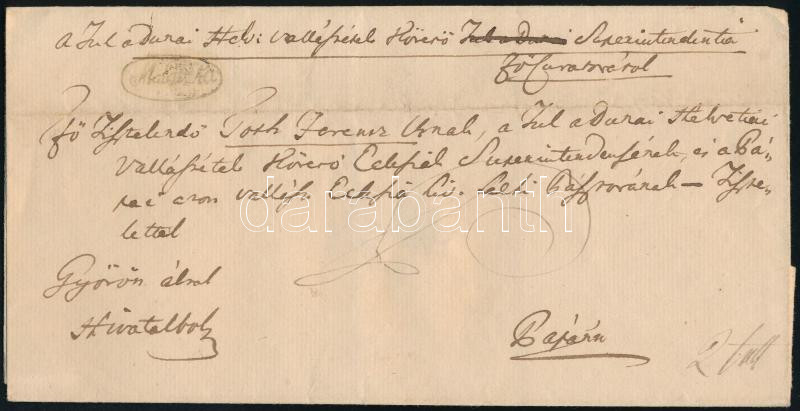 A Tul a Dunai Helv: vallástétel Követő Tul a Dunai Superintendentia
fő Curatorától
Fő Tisztelendő Tóth Ferencz Urnak, a Tul a Dunai Helvétiai
vallástétel Követő Eclésiák Superintendensének, és a Pá-
pai azon vallásu Eclésia Pásztorának — Tiszte-
lettel
Győrön által
Hivatalból
Pápára
darabanth
2